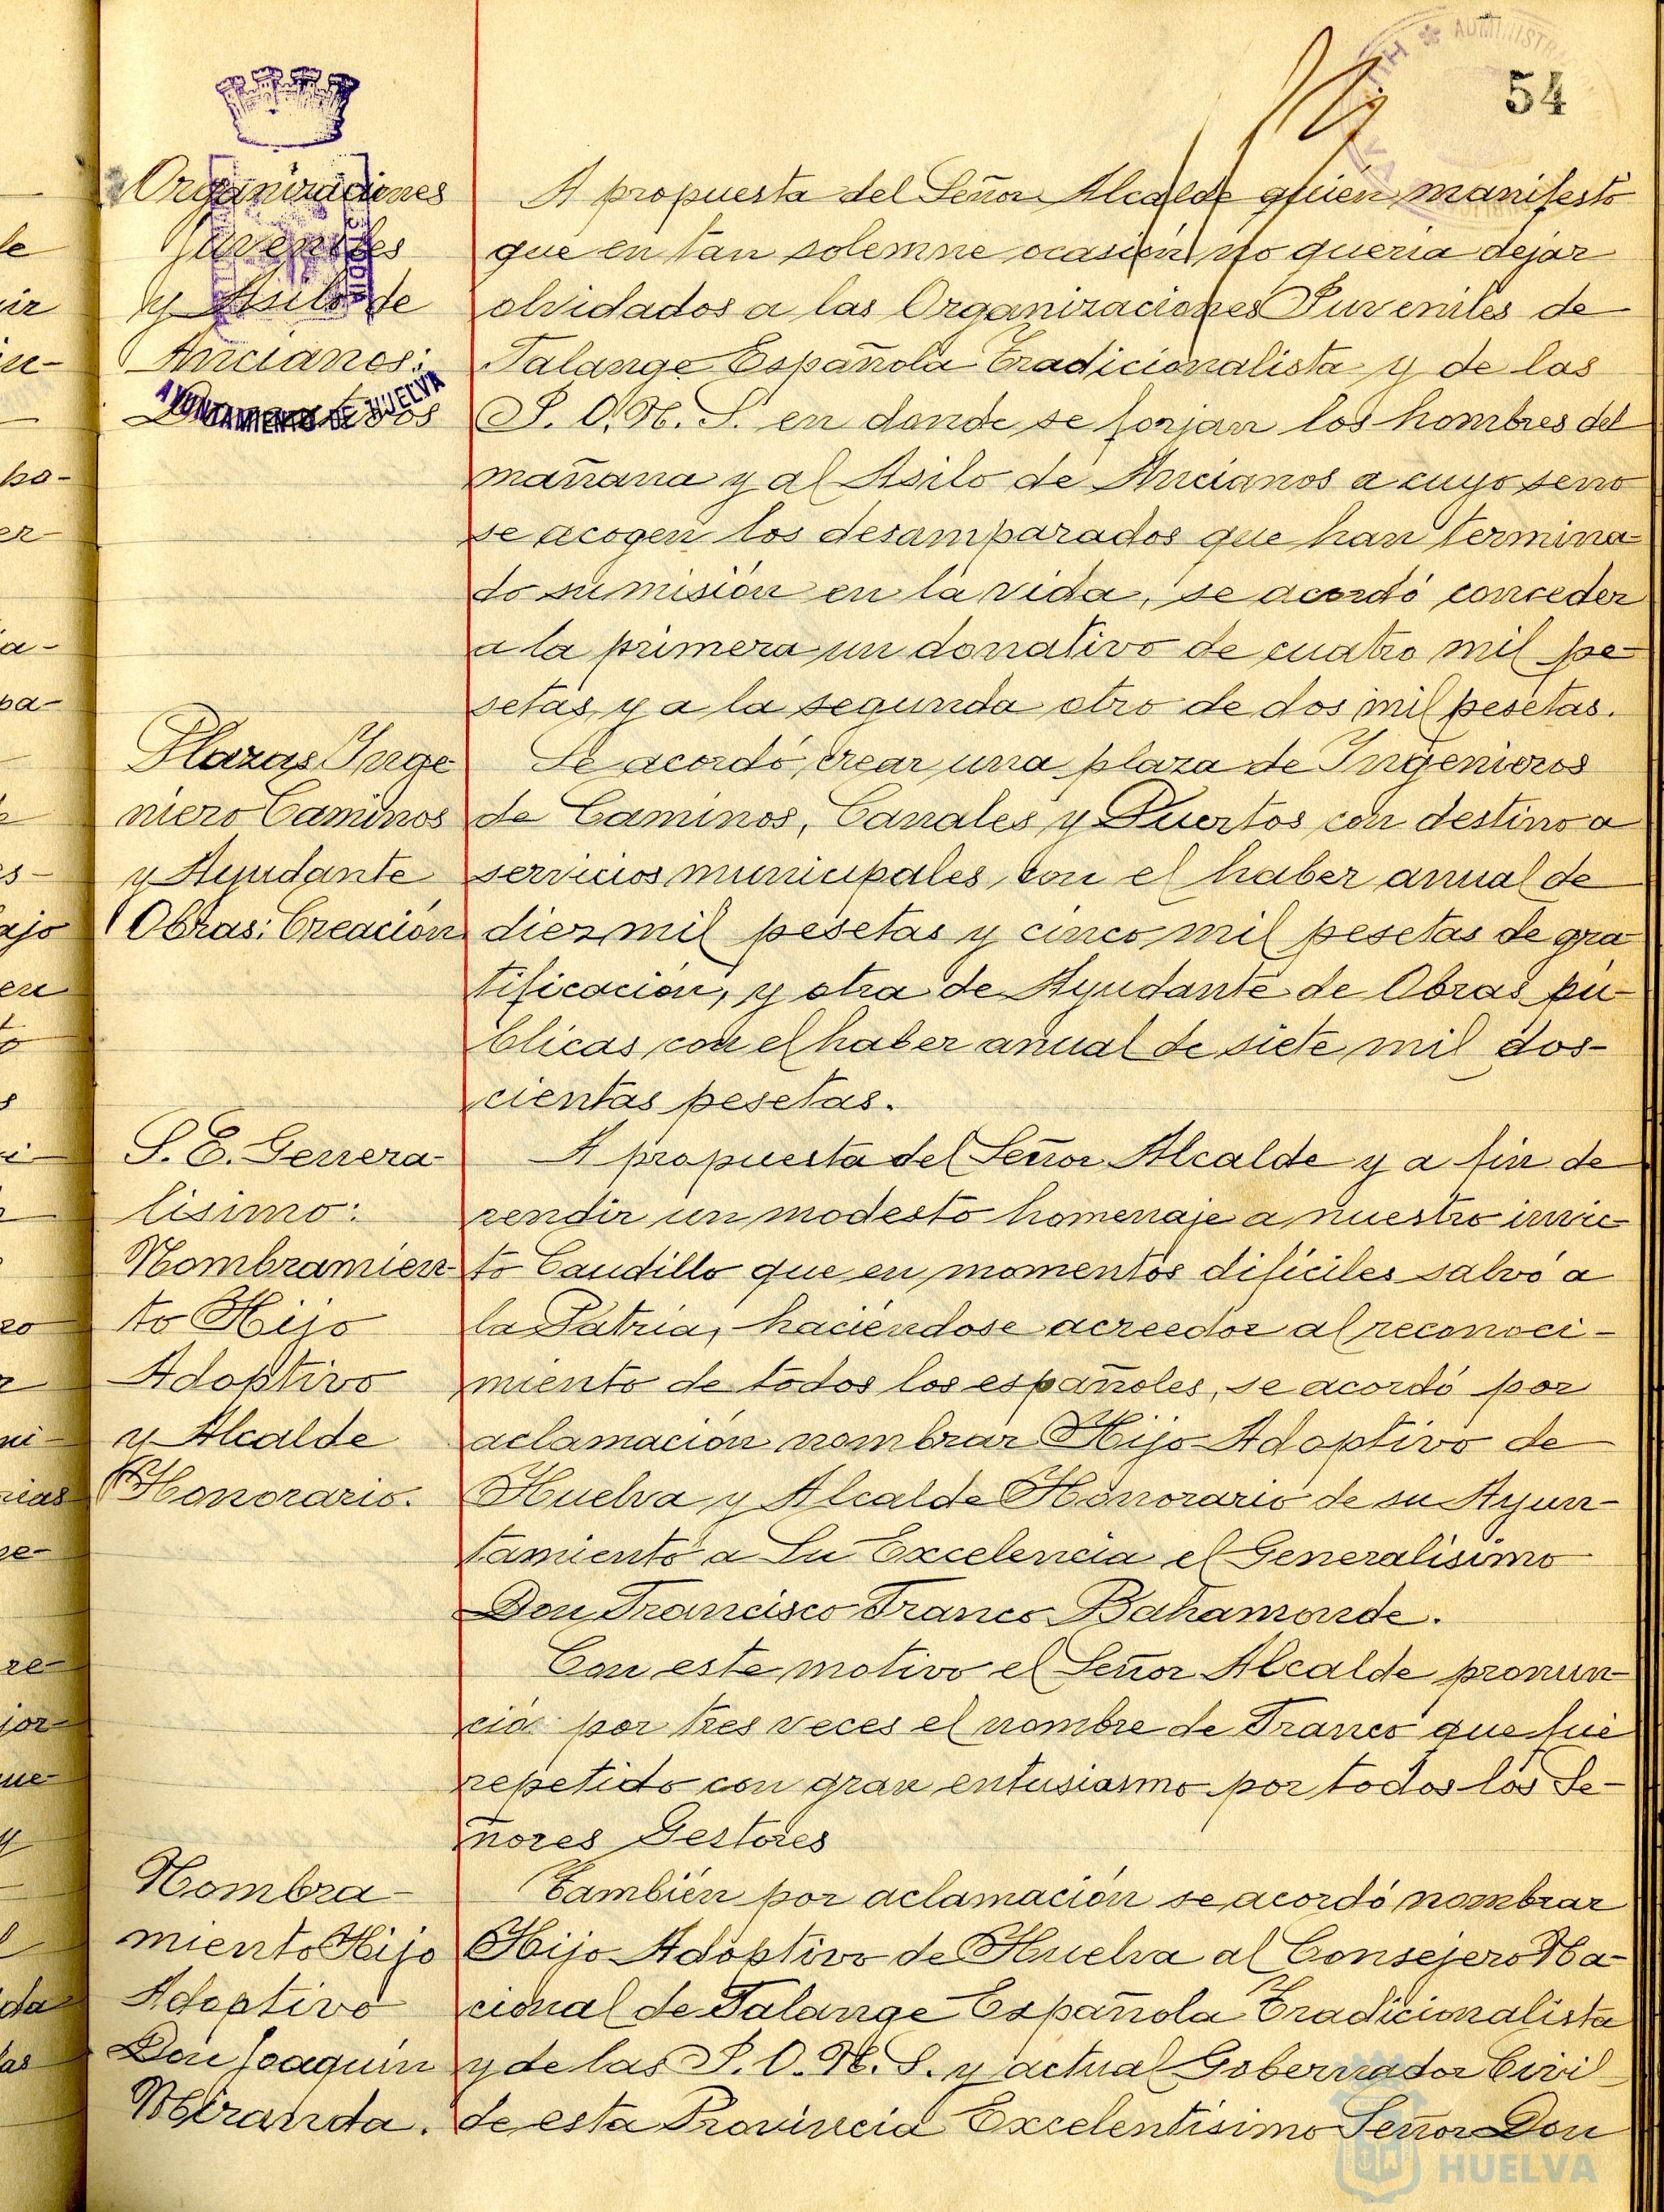 54
Organizaciones
Juveniles
y Asilo de
Ancianos:
AYUNTAMIENTO DE HUELVA
A propuesta del Señor Alcalde quien manifestó
que en tan solemne ocasión no queria dejar
olvidados a las Organizaciones Juveniles de
Falange Española Tradicionalista y de las
J. O. N. S. en donde se forjan los hombres del
mañana y al Asilo de Ancianos a cuyo seno
se acogen los desamparados que han termina-
do su misión en la vida, se acordó conceder
a la primera un donativo de cuatro mil pe-
setas y a la segunda otro de dos mil pesetas.
Plazas Inge
niero Caminos
y Ayudante
Obras: Creación
Se acordó crear una plaza de Ingenieros
de Caminos, Canales y Puertos con destino a
servicios municipales con el haber anual de
diez mil pesetas y cinco mil pesetas de gra-
tificación, y otra de Ayudante de Obras pú-
blicas con el haber anual de siete mil dos-
cientas pesetas.
S. E. Genera-
lisimo:
Nombramien-
to Hijo
Adoptivo
y Alcalde
Honorario.
A propuesta del Señor Alcalde y a fin de
rendir un modesto homenaje a nuestro invic-
to Caudillo que en momentos dificiles salvó a
la Patria, haciéndose acreedor al reconoci-
miento de todos los españoles, se acordó por
aclamación nombrar Hijo Adoptivo de
Huelva y Alcalde Honorario de su Ayun-
tamiento a Su Excelencia el Generalisimo
Don Francisco Franco Bahamonde.
Con este motivo el Señor Alcalde pronun-
ció por tres veces el nombre de Franco que fué
repetido con gran entusiasmo por todos los Se-
ñores Gestores
Nombra-
miento Hijo
Adoptivo
Don Joaquin
Miranda.
También por aclamación se acordó nombrar
Hijo Adoptivo de Huelva al Consejero Na-
cional de Falange Española Tradicionalista
y de las J. O. N. S. y actual Gobernador Civil
de esta Provincia Excelentisimo Señor Don
HUELVA